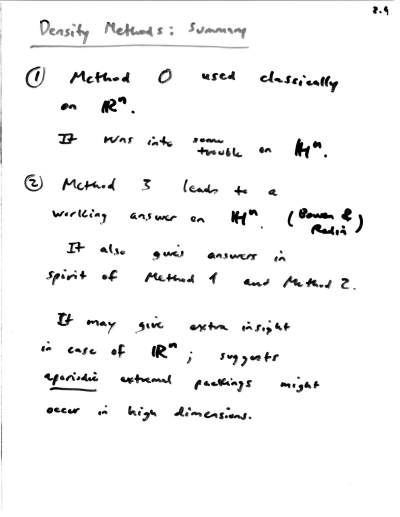 2.9
Density Methods: Summary
① Method 0 used classically
on ℝⁿ.
It runs into some trouble on ℍⁿ.
② Method 3 leads to a
working answer on ℍⁿ. (Bowen & Radin)
It also gives answers in
spirit of Method 1 and Method 2.
It may give extra insight
in case of ℝⁿ; suggests
aperiodic extremal packings might
occur in high dimensions.